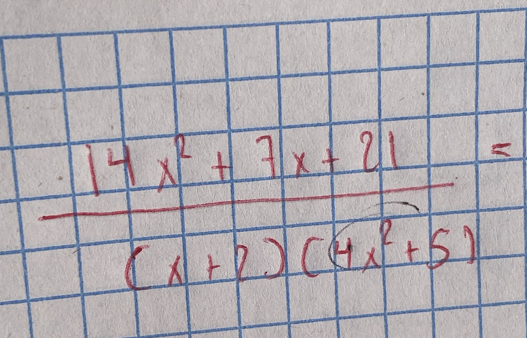 14x² + 7x + 21 =
(x + 2) (4x² + 5)